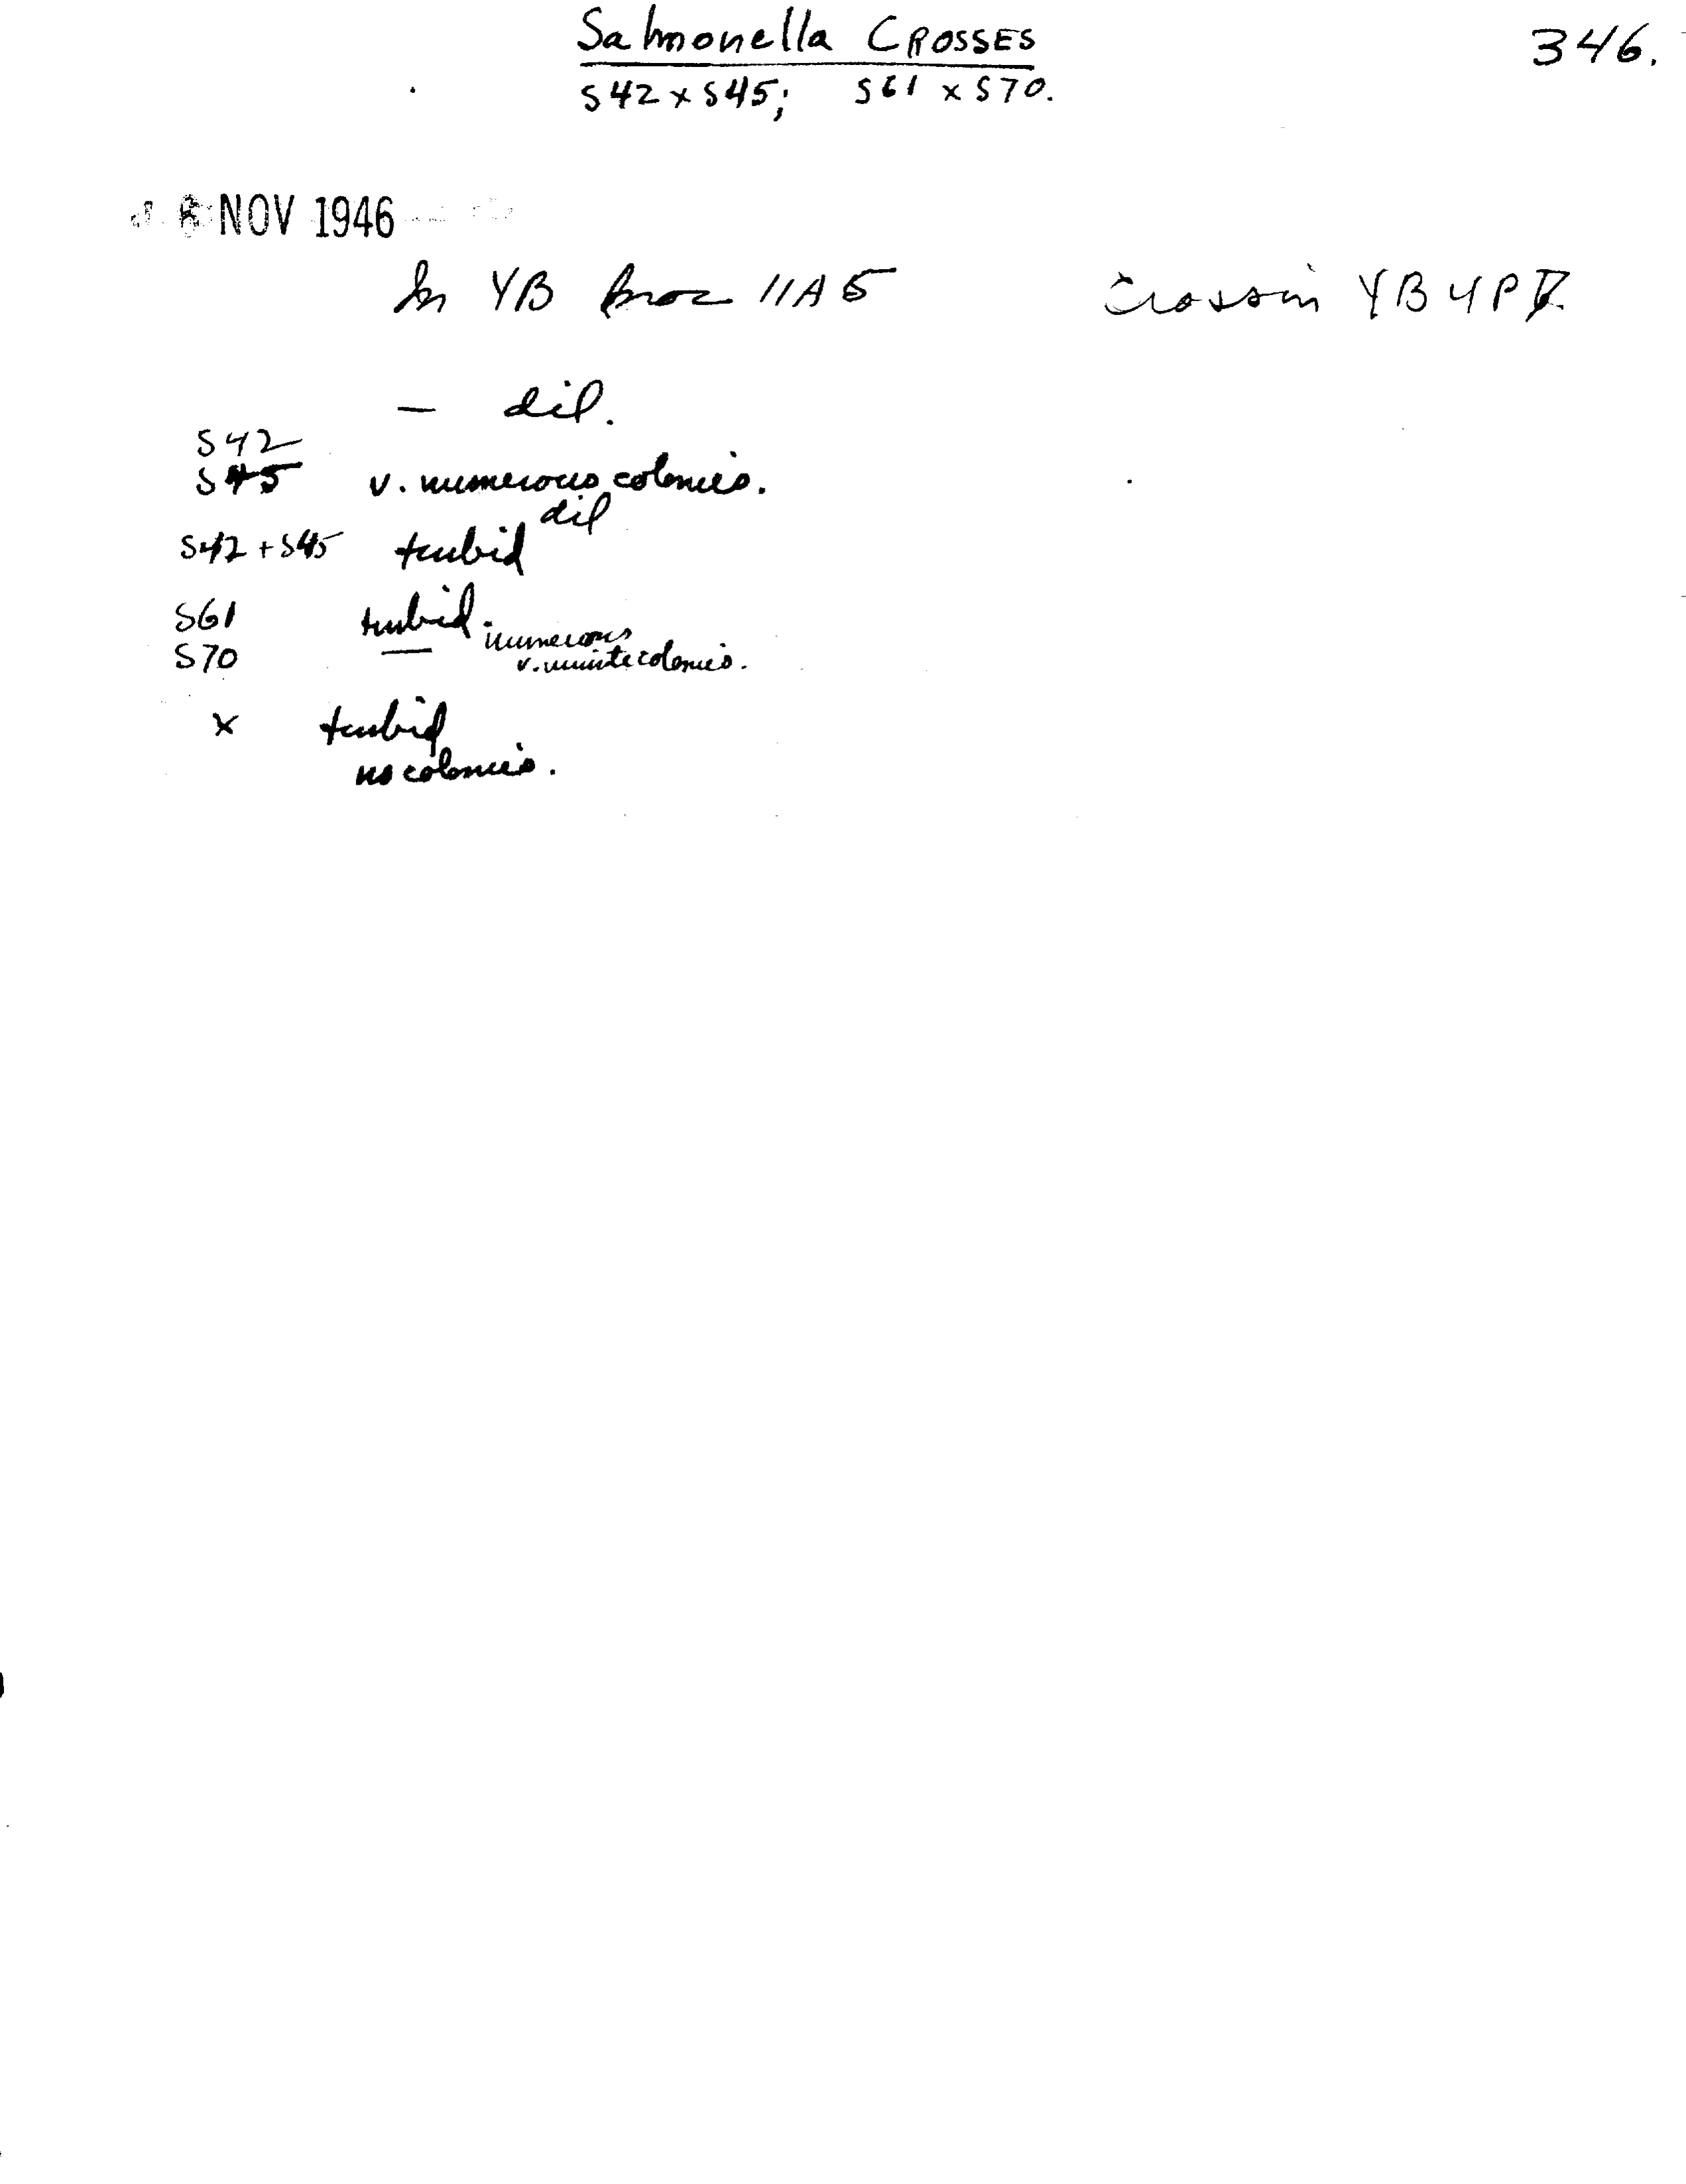 Salmonella CROSSES
346.
S42 x S45; S61 x S70.
NOV 1946
In YB 11A5
Cross in YB 4P
— dil.
S42
S45 v. numerous colonies.
dil
S42 + S45 turbid
S61 turbid.
S70 — numerous
v. minute colonies.
x turbid
no colonies.